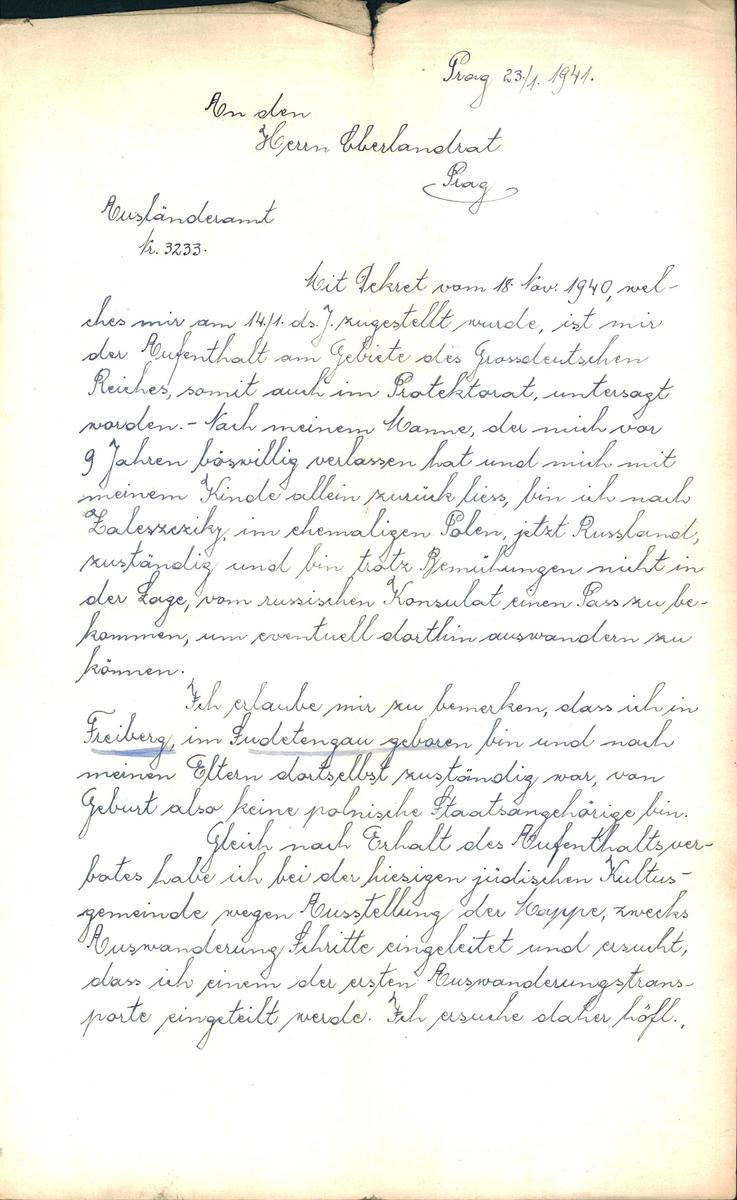 Prag 23./1. 1941.
An den
Herrn Oberlandrat
Prag
Ausländeramt
Nr. 3233.
Mit Dekret vom 18. Nov. 1940, wel-
ches mir am 14./1. ds. J. zugestellt wurde, ist mir
der Aufenthalt am Gebiete des Grossdeutschen
Reiches, somit auch im Protektorat, untersagt
worden. - Nach meinem Manne, der mich vor
9 Jahren böswillig verlassen hat und mich mit
meinem Kinde allein zurück liess, bin ich nach
Zaleszcziky, im ehemaligen Polen, jetzt Russland,
zuständig und bin trotz Bemühungen nicht in
der Lage, vom russischen Konsulat einen Pass zu be-
kommen, um eventuell dorthin auswandern zu
können.
Ich erlaube mir zu bemerken, dass ich in
Freiberg, im Sudetengau geboren bin und nach
meinen Eltern dortselbst zuständig war, von
Geburt also keine polnische Staatsangehörige bin.
Gleich nach Erhalt des Aufenthaltsver-
botes habe ich bei der hiesigen jüdischen Kultus-
gemeinde wegen Ausstellung der Mappe, zwecks
Auswanderung Schritte eingeleitet und ersucht,
dass ich einem der ersten Auswanderungstrans-
porte eingeteilt werde. Ich ersuche daher höfl.,